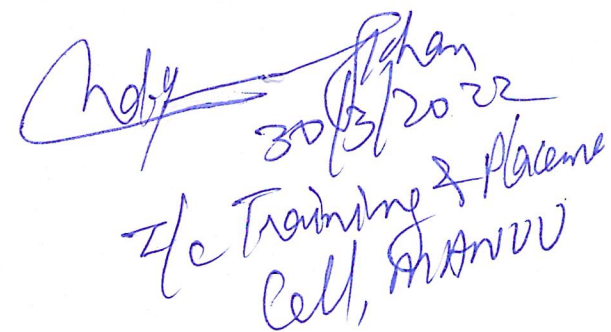 30/3/2022
I/c Training & Placeme
Cell, MANUU